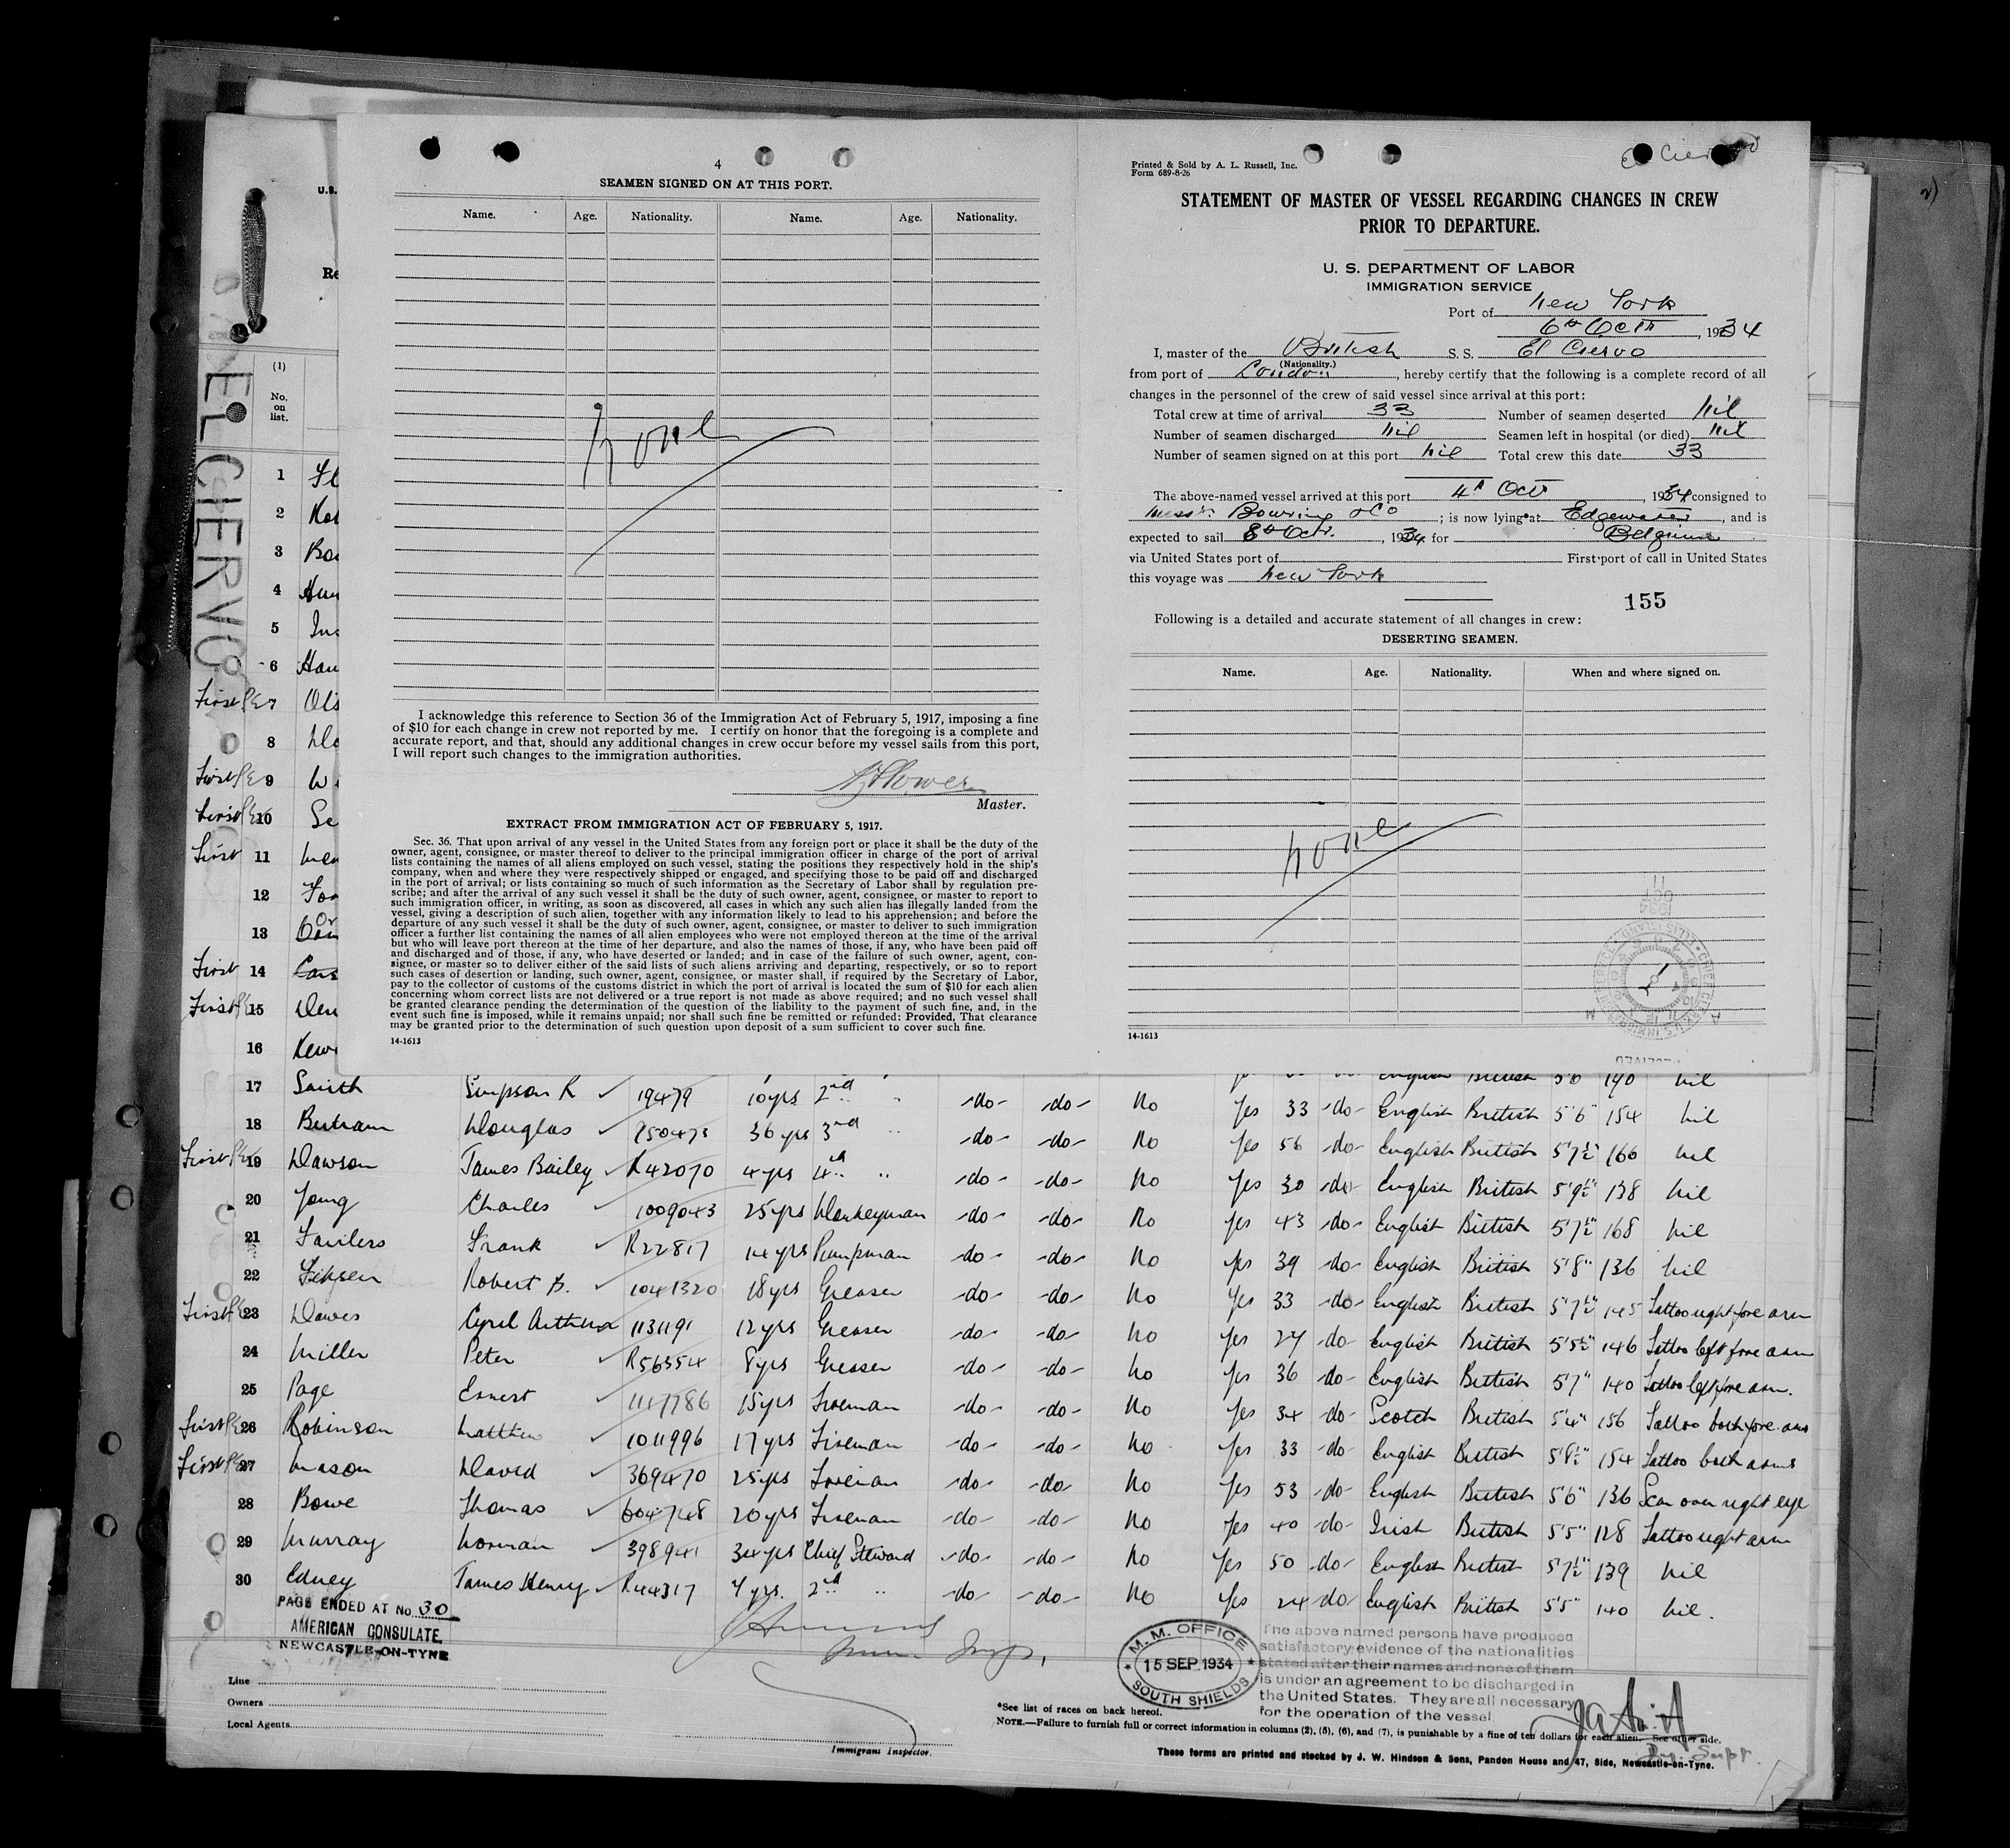 4
SEAMEN SIGNED ON AT THIS PORT.
Name. Age. Nationality. Name. Age. Nationality.
none
I acknowledge this reference to Section 36 of the Immigration Act of February 5, 1917, imposing a fine
of $10 for each change in crew not reported by me. I certify on honor that the foregoing is a complete and
accurate report, and that, should any additional changes in crew occur before my vessel sails from this port,
I will report such changes to the immigration authorities.
Master.
EXTRACT FROM IMMIGRATION ACT OF FEBRUARY 5, 1917.
Sec. 36. That upon arrival of any vessel in the United States from any foreign port or place it shall be the duty of the
owner, agent, consignee, or master thereof to deliver to the principal immigration officer in charge of the port of arrival
lists containing the names of all aliens employed on such vessel, stating the positions they respectively hold in the ship's
company, when and where they were respectively shipped or engaged, and specifying those to be paid off and discharged
in the port of arrival; or lists containing so much of such information as the Secretary of Labor shall by regulation pre-
scribe; and after the arrival of any such vessel it shall be the duty of such owner, agent, consignee, or master to report to
such immigration officer, in writing, as soon as discovered, all cases in which any such alien has illegally landed from the
vessel, giving a description of such alien, together with any information likely to lead to his apprehension; and before the
departure of any such vessel it shall be the duty of such owner, agent, consignee, or master to deliver to such immigration
officer a further list containing the names of all alien employees who were not employed thereon at the time of the arrival
but who will leave port thereon at the time of her departure, and also the names of those, if any, who have been paid off
and discharged and of those, if any, who have deserted or landed; and in case of the failure of such owner, agent, con-
signee, or master so to deliver either of the said lists of such aliens arriving and departing, respectively, or so to report
such cases of desertion or landing, such owner, agent, consignee, or master shall, if required by the Secretary of Labor,
pay to the collector of customs of the customs district in which the port of arrival is located the sum of $10 for each alien
concerning whom correct lists are not delivered or a true report is not made as above required; and no such vessel shall
be granted clearance pending the determination of the question of the liability to the payment of such fine, and, in the
event such fine is imposed, while it remains unpaid; nor shall such fine be remitted or refunded: Provided, That clearance
may be granted prior to the determination of such question upon deposit of a sum sufficient to cover such fine.
14-1613
Printed & Sold by A. L. Russell, Inc.
Form 689-8-26
STATEMENT OF MASTER OF VESSEL REGARDING CHANGES IN CREW
PRIOR TO DEPARTURE.
U. S. DEPARTMENT OF LABOR
IMMIGRATION SERVICE
Port of New York
6th Oct, 1934
I, master of the British S. S. El Ciervo
(Nationality.)
from port of London, hereby certify that the following is a complete record of all
changes in the personnel of the crew of said vessel since arrival at this port:
Total crew at time of arrival 33 Number of seamen deserted Nil
Number of seamen discharged Nil Seamen left in hospital (or died) Nil
Number of seamen signed on at this port Nil Total crew this date 33
The above-named vessel arrived at this port 4th Oct, 1934 consigned to
Messrs. Bowring & Co; is now lying at Edgewater, and is
expected to sail 8th Oct., 1934 for Belgium
via United States port of First port of call in United States
this voyage was New York
155
Following is a detailed and accurate statement of all changes in crew:
DESERTING SEAMEN.
Name. Age. Nationality. When and where signed on.
none
14-1613
EL CIERVO
(1)
No.
on
list.
1
2
3
4
5
6
First 7
8
First 9
First 10
First 11
12
13
First 14
First 15
16
17 Smith Simpson R 19479 10yrs 2nd " -do- -do- No Yes 33 -do- English British 5'6" 154 Nil
18 Bertram Douglas 750473 36 yrs 3rd " -do- -do- No Yes 56 -do- English British 5'7½" 166 Nil
First 19 Dawson James Bailey R42070 4 yrs 4th " -do- -do- No Yes 30 -do- English British 5'9½" 138 Nil
20 Young Charles 1009043 25yrs Donkeyman -do- -do- No Yes 43 -do- English British 5'7½" 168 Nil
21 Frank R22817 14 yrs Pumpman -do- -do- No Yes 39 -do- English British 5'8" 136 Nil
22 Robert B. 1041320 18yrs Greaser -do- -do- No Yes 33 -do- English British 5'7½" 145 Tattoo right fore arm
First 23 Davies Cyril Arthur 1131191 12yrs Greaser -do- -do- No Yes 27 -do- English British 5'5½" 146 Tattoo left fore arm
24 Miller Peter R56354 8yrs Greaser -do- -do- No Yes 36 -do- English British 5'7" 140 Tattoo left fore arm.
25 Page Ernest 1147786 15yrs Fireman -do- -do- No Yes 34 -do- Scotch British 5'4" 156 Tattoo both fore arms
First 26 Robinson Matthew 1011996 17yrs Fireman -do- -do- No Yes 33 -do- English British 5'8½" 154 Tattoo both arms
First 27 Mason David 369470 25yrs Fireman -do- -do- No Yes 53 -do- English British 5'6" 136 Scar over right eye
28 Bowe Thomas 604748 20yrs Fireman -do- -do- No Yes 40 -do- Irish British 5'5" 128 Tattoo right arm
29 Murray Norman 398941 34yrs Chief Steward -do- -do- No Yes 50 -do- English British 5'7½" 139 Nil
30 Edney James Henry R44317 7 yrs. 2nd " -do- -do- No Yes 24 -do- English British 5'5" 140 Nil.
PAGE ENDED AT No. 30
AMERICAN CONSULATE.
NEWCASTLE-ON-TYNE
M. M. OFFICE
15 SEP 1934
SOUTH SHIELDS
The above named persons have produced
satisfactory evidence of the nationalities
stated after their names and none of them
is under an agreement to be discharged in
the United States. They are all necessary
for the operation of the vessel.
Line
Owners
Local Agents
Immigrant Inspector.
*See list of races on back hereof.
NOTE.—Failure to furnish full or correct information in columns (2), (5), (6), and (7), is punishable by a fine of ten dollars for each alien. See other side.
These forms are printed and stocked by J. W. Hindson & Sons, Pandon House and 47, Side, Newcastle-on-Tyne.